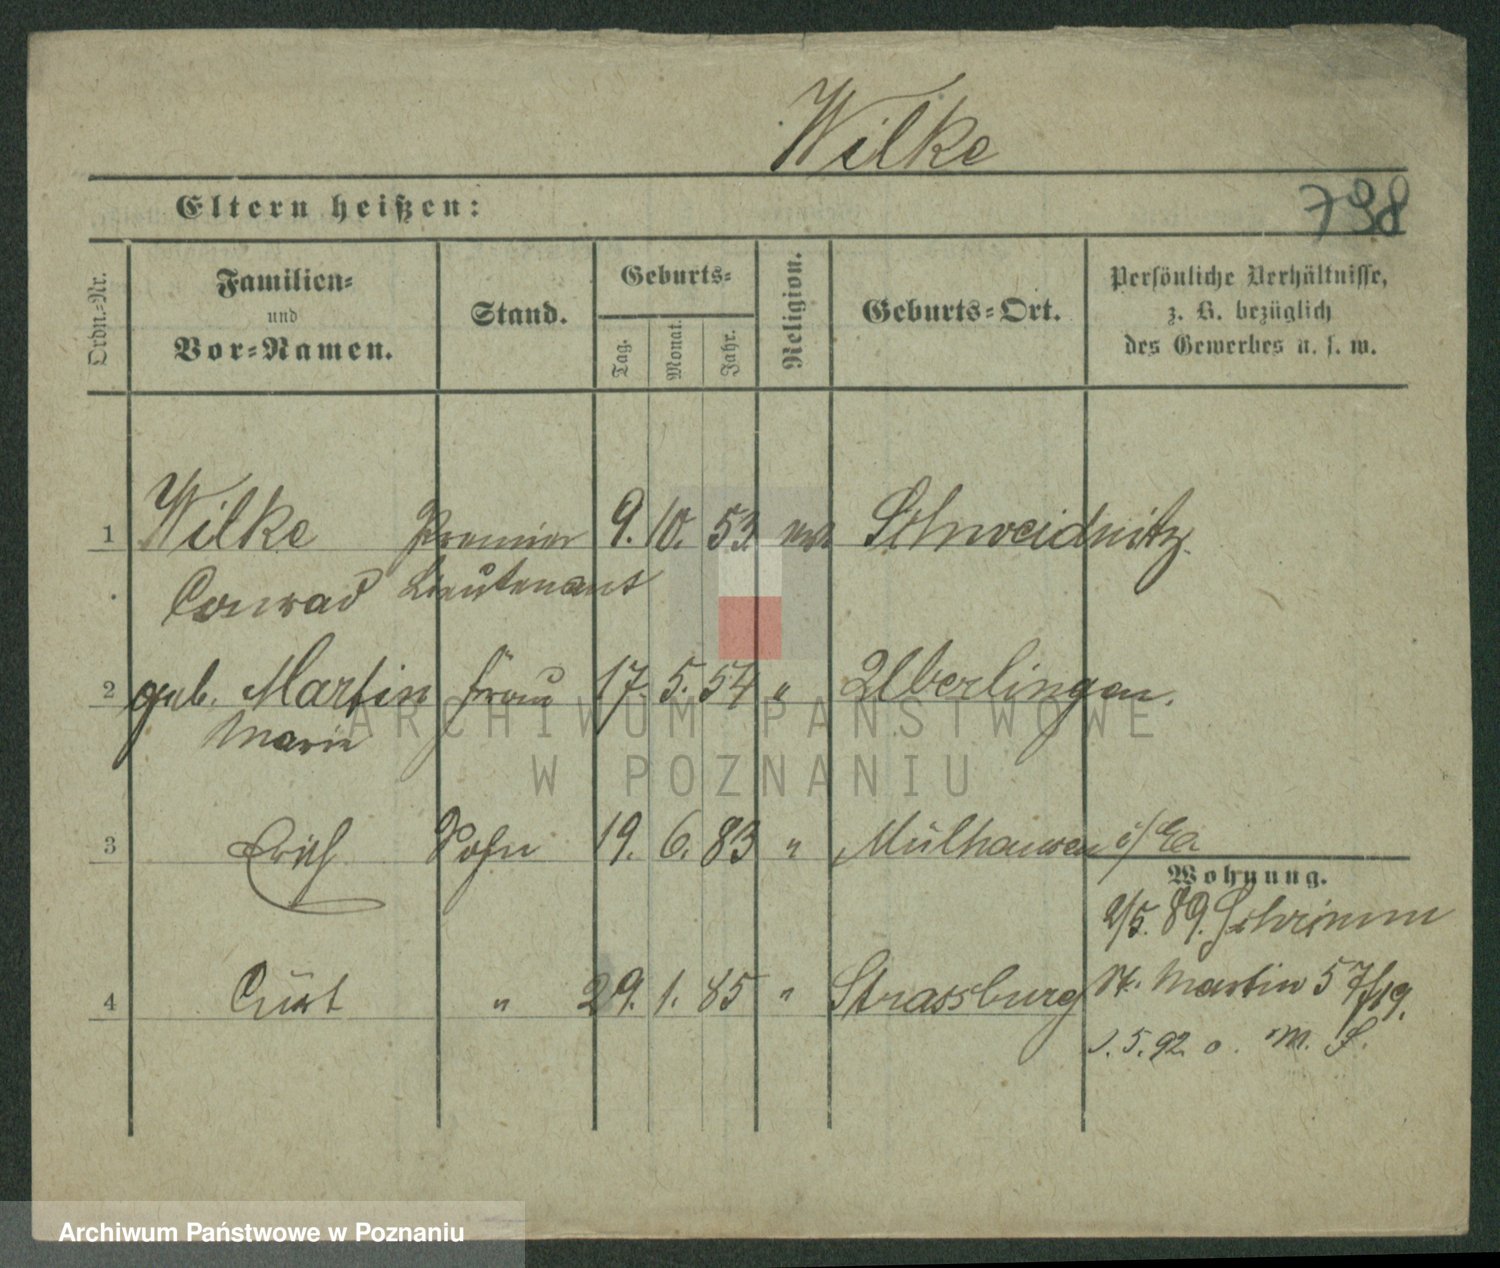 Wilke
Eltern heißen:
798
Ordn.-Nr.
Familien-
und
Vor-Namen.
Stand.
Geburts-
Tag.
Monat.
Jahr.
Religion.
Geburts-Ort.
Persönliche Verhältnisse,
z. B. bezüglich
des Gewerbes u. s. w.
1 Wilke Premier 9. 10. 53 Schweidnitz.
Conrad Lieutenant
2 geb. Martin Frau 17. 5. 54 " Überlingen.
Marie
3 Erich Sohn 19. 6. 83 " Mülhausen i/Els
Wohnung.
2/5. 89. Schrimm
4 Curt " 29. 1. 85 " Strassburg St. Martin 57/19.
5. 92. o. M. S.
ARCHIWUM PAŃSTWOWE
W POZNANIU
Archiwum Państwowe w Poznaniu